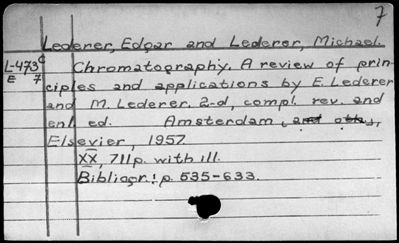 7
Lederer, Edgar and Lederer, Michael.
L-473c Chromatography. A review of prin-
E 7 ciples and applications by E. Lederer
and M. Lederer. 2-d, compl. rev. and
enl. ed. Amsterdam, and oths,
Elsevier, 1957.
XX, 711p. with ill.
Bibliogr.: p. 535-633.